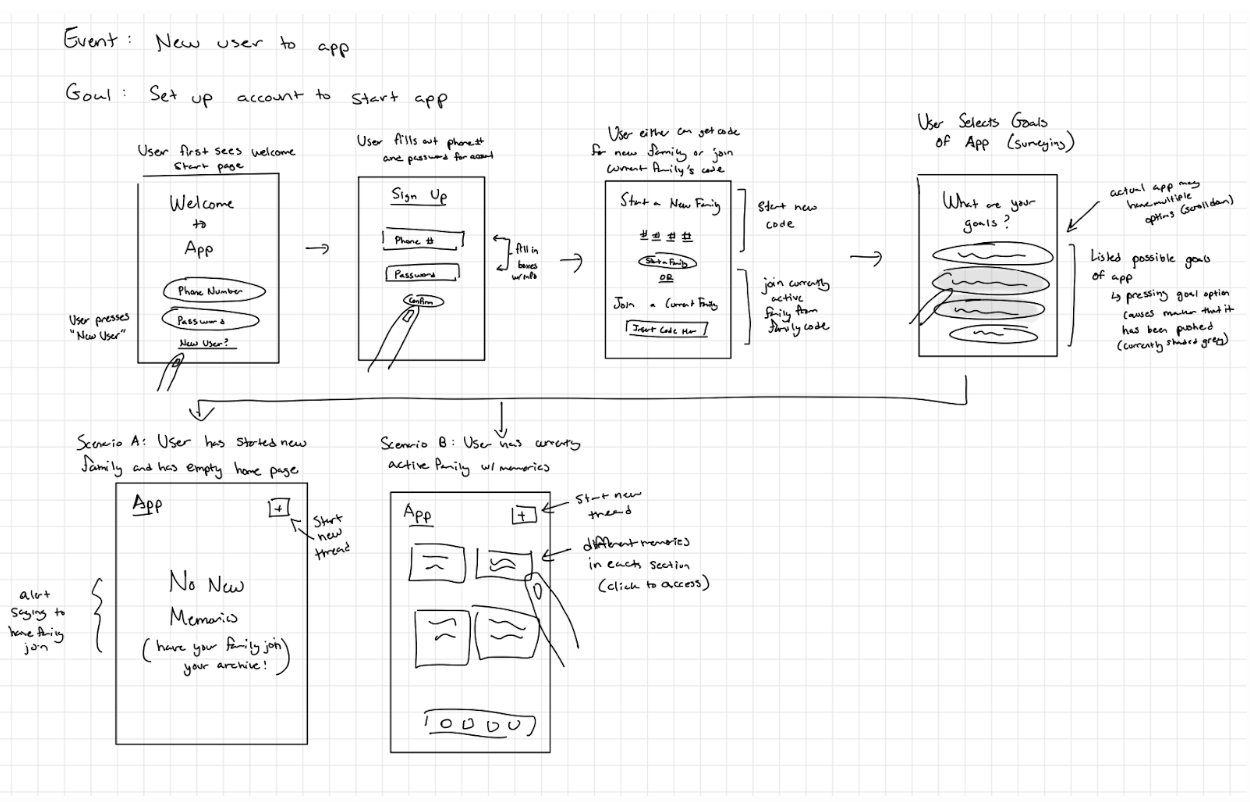 Event: New user to app
Goal: Set up account to start app
User first sees welcome
start page
Welcome
to
App
Phone Number
Password
New User?
User presses
"New User"
User fills out phone #
and password for account
Sign Up
Phone #
Password
Confirm
fill in
boxes
w/ info
User either can get code
for new family or join
current family's code
Start a New Family
# # # #
Start a Family
OR
Join a Current Family
Insert Code Here
Start new
code
join currently
active
family from
family code
User Selects Goals
of App (surveying)
What are your
goals?
actual app may
have multiple
options (scroll down)
Listed possible goals
of app
↳ pressing goal option
causes marker that it
has been pushed
(currently shaded grey)
Scenario A: User has started new
family and has empty home page
App
+
Start
new
thread
No New
Memories
(have your family join
your archive!)
alert
saying to
have family
join
Scenario B: User has currently
active family w/ memories
App
+
Start new
thread
different memories
in each section
(click to access)